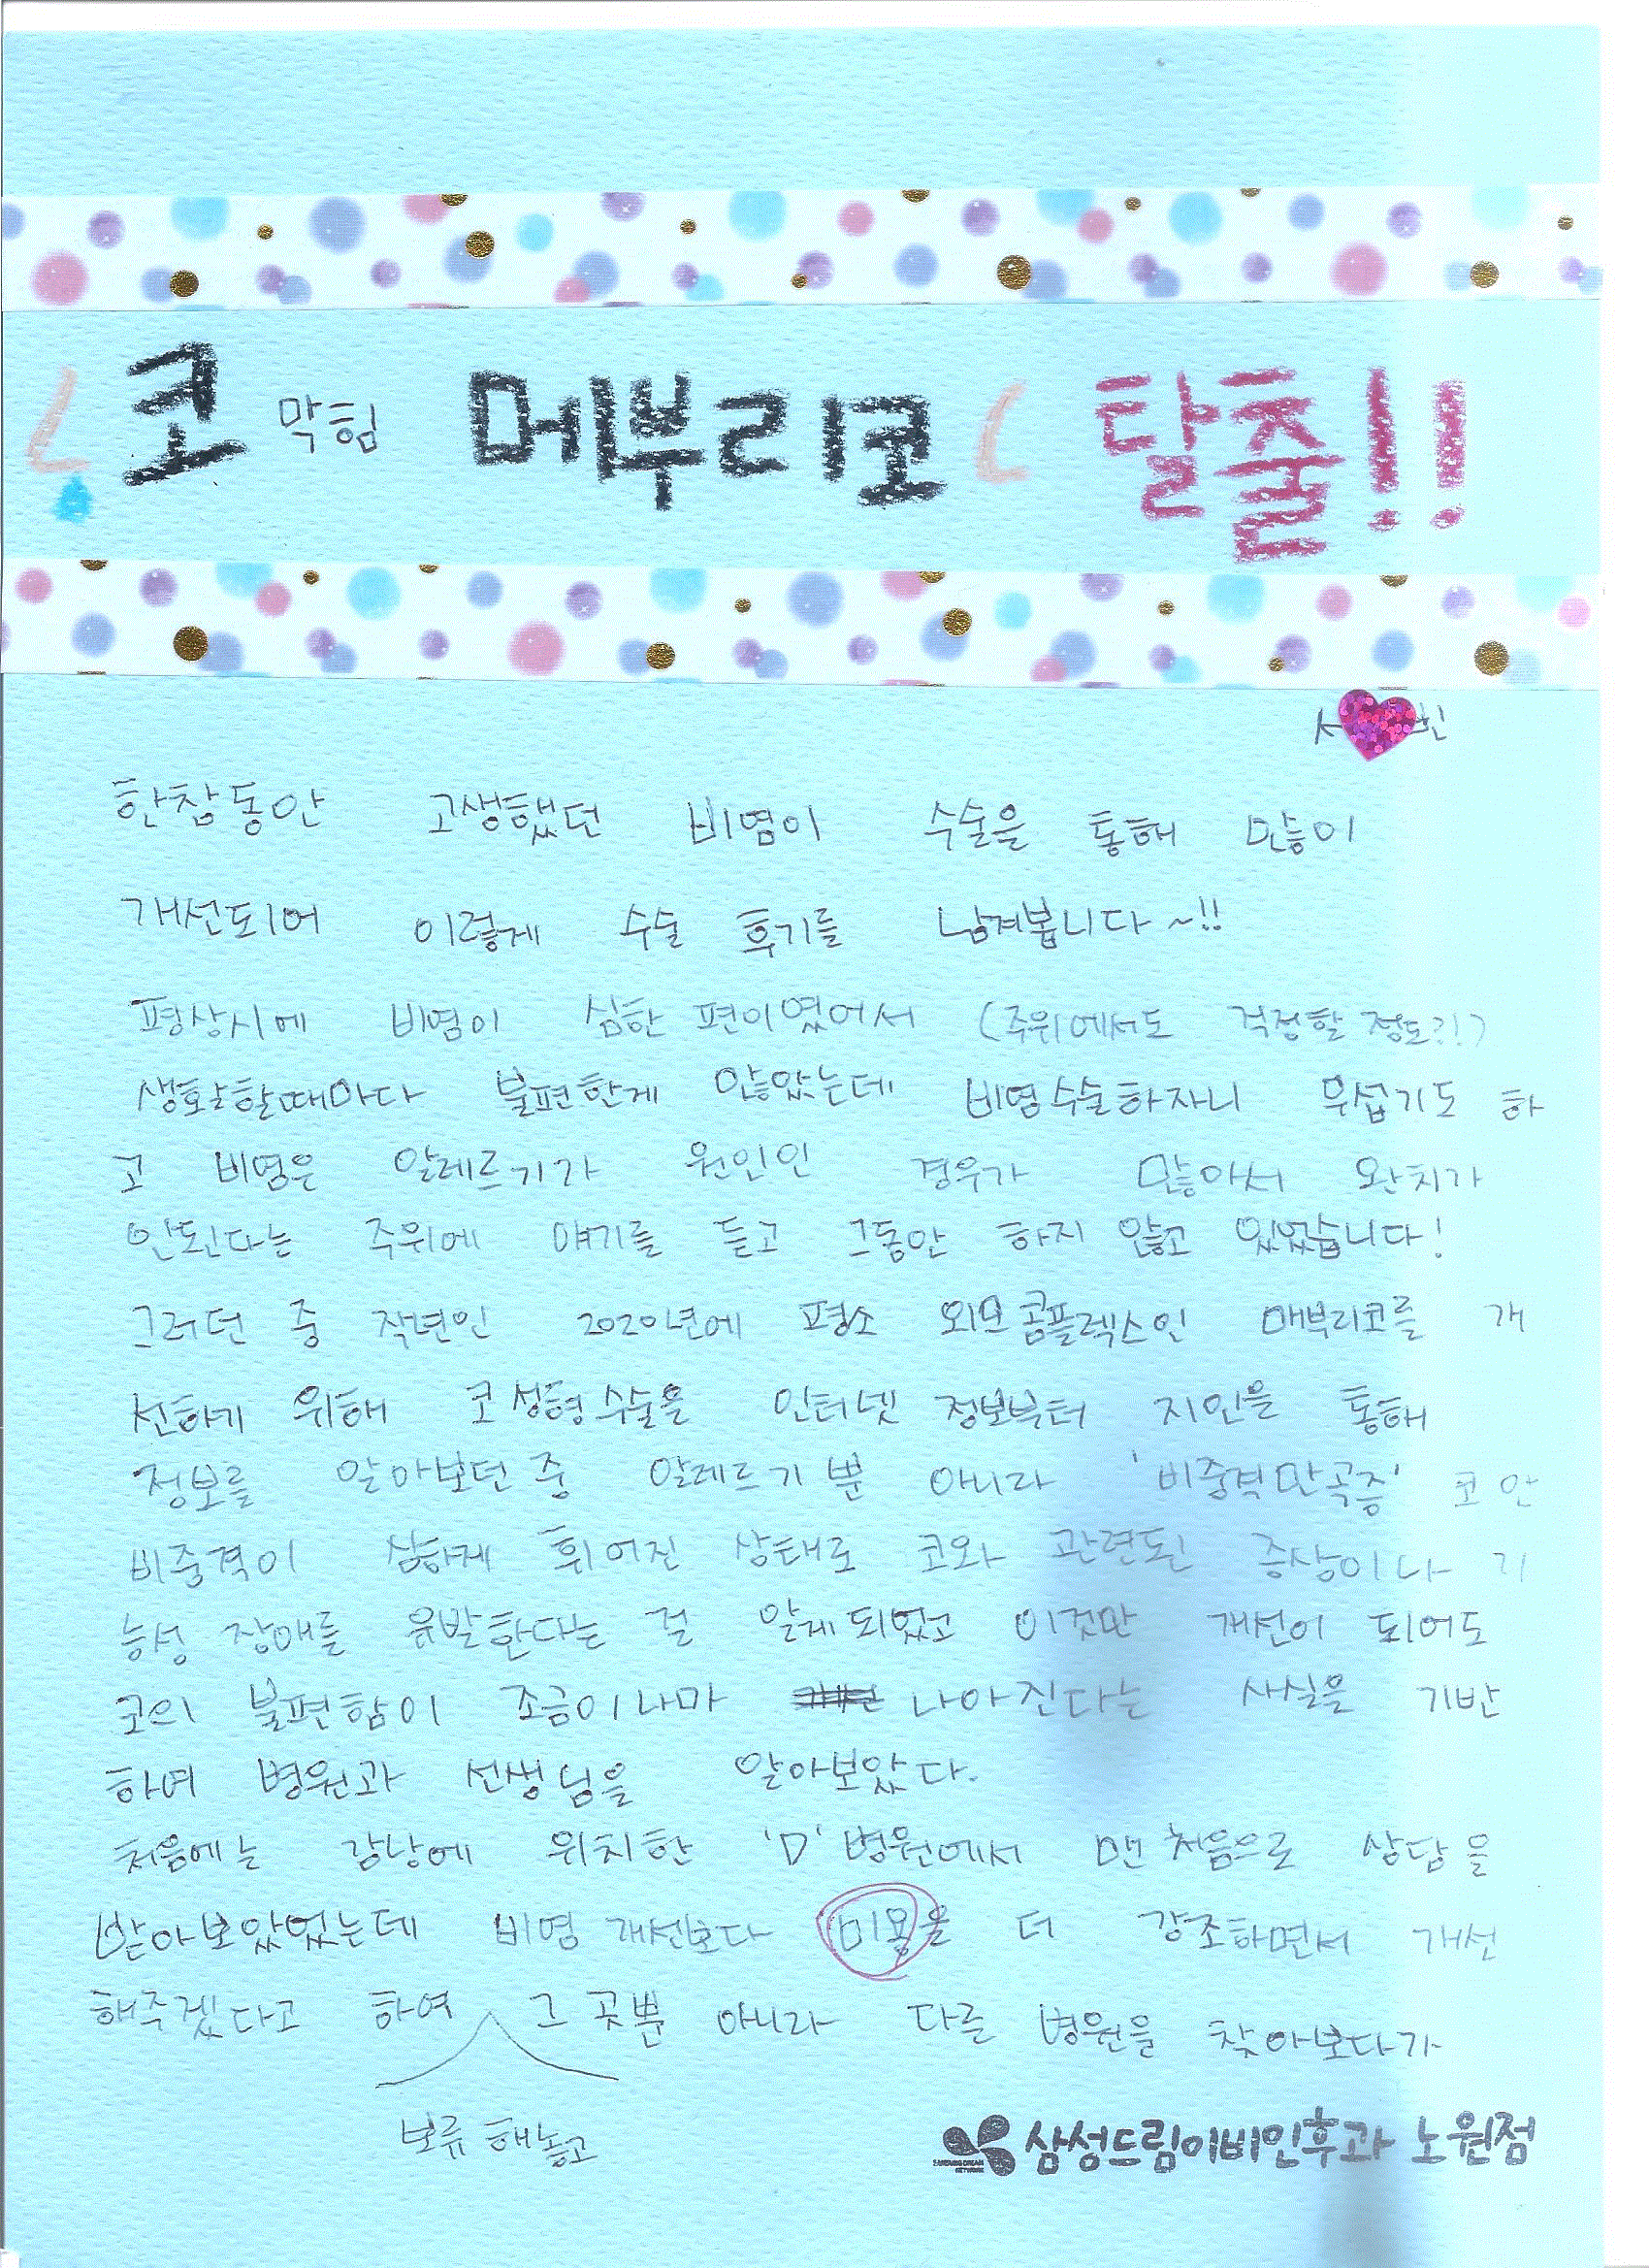 코막힘 메부리코 탈출!!
한참동안 고생했던 비염이 수술을 통해 많이
개선되어 이렇게 수술 후기를 남겨봅니다~!!
평상시에 비염이 심한 편이였어서 (주위에서도 걱정할 정도?!)
생활할때마다 불편한게 많았는데 비염수술하자니 무섭기도 하
고 비염은 알레르기가 원인인 경우가 많아서 완치가
안된다는 주위에 얘기를 듣고 그동안 하지 않고 있었습니다!
그러던 중 작년인 2020년에 평소 외모콤플렉스인 매부리코를 개
선하기 위해 코성형수술을 인터넷 정보부터 지인을 통해
정보를 알아보던 중 알레르기 뿐 아니라 '비중격만곡증' 코 안
비중격이 심하게 휘어진 상태로 코와 관련된 증상이나 기
능성 장애를 유발한다는 걸 알게되었고 이것만 개선이 되어도
코의 불편함이 조금이나마 나아진다는 사실을 기반
하여 병원과 선생님을 알아보았다.
처음에는 강남에 위치한 'D'병원에서 맨 처음으로 상담을
받아보았었는데 비염 개선보다 미용을 더 강조하면서 개선
해주겠다고 하여 그 곳뿐 아니라 다른 병원을 찾아보다가
보류 해놓고
삼성드림이비인후과 노원점